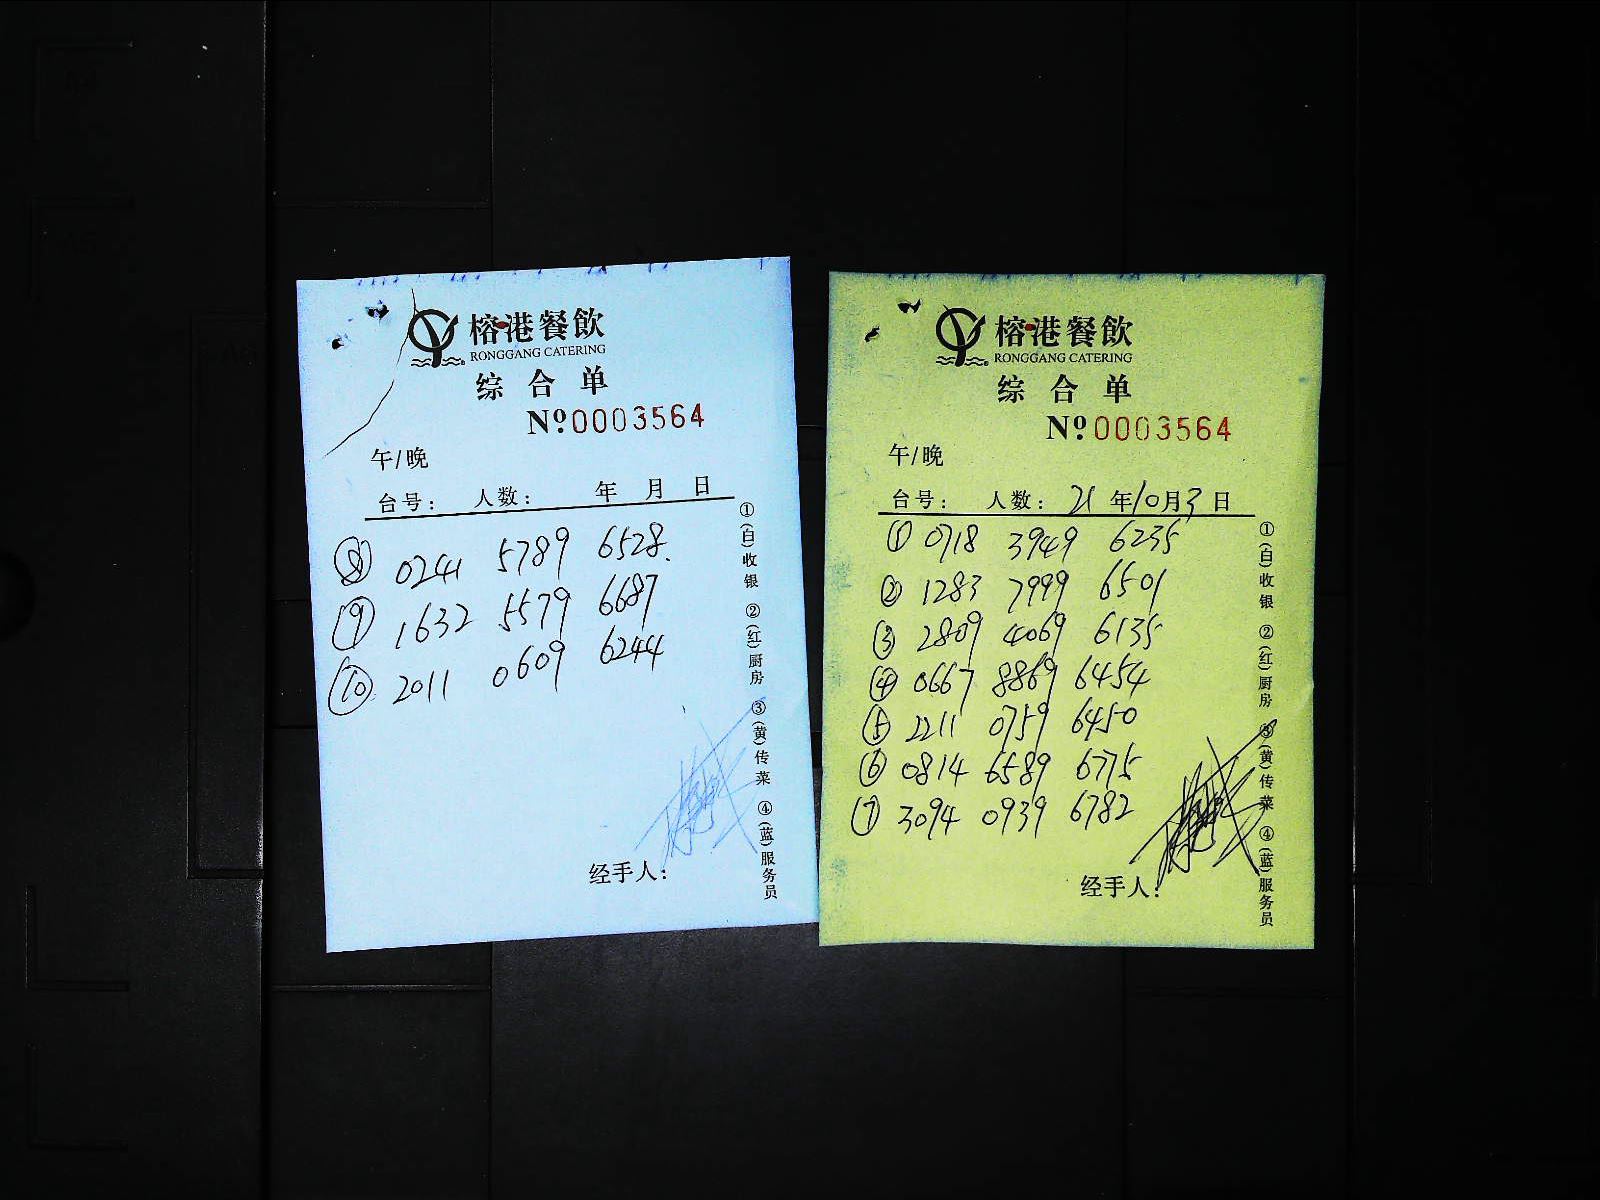 榕港餐飲
RONGGANG CATERING
综合单
Nº0003564
午/晚
台号： 人数： 年 月 日
⑧ 0241 5789 6528.
⑨ 1632 5579 6687
⑩ 2011 0609 6244
①(白)收银 ②(红)厨房 ③(黄)传菜 ④(蓝)服务员
经手人：
榕港餐飲
RONGGANG CATERING
综合单
Nº0003564
午/晚
台号： 人数： 21年10月3日
① 0718 3949 6235
② 1283 7999 6501
③ 2809 4069 6135
④ 0667 8869 6454
⑤ 2211 0759 6450
⑥ 0814 6589 6775
⑦ 3094 0939 6782
①(白)收银 ②(红)厨房 ③(黄)传菜 ④(蓝)服务员
经手人：